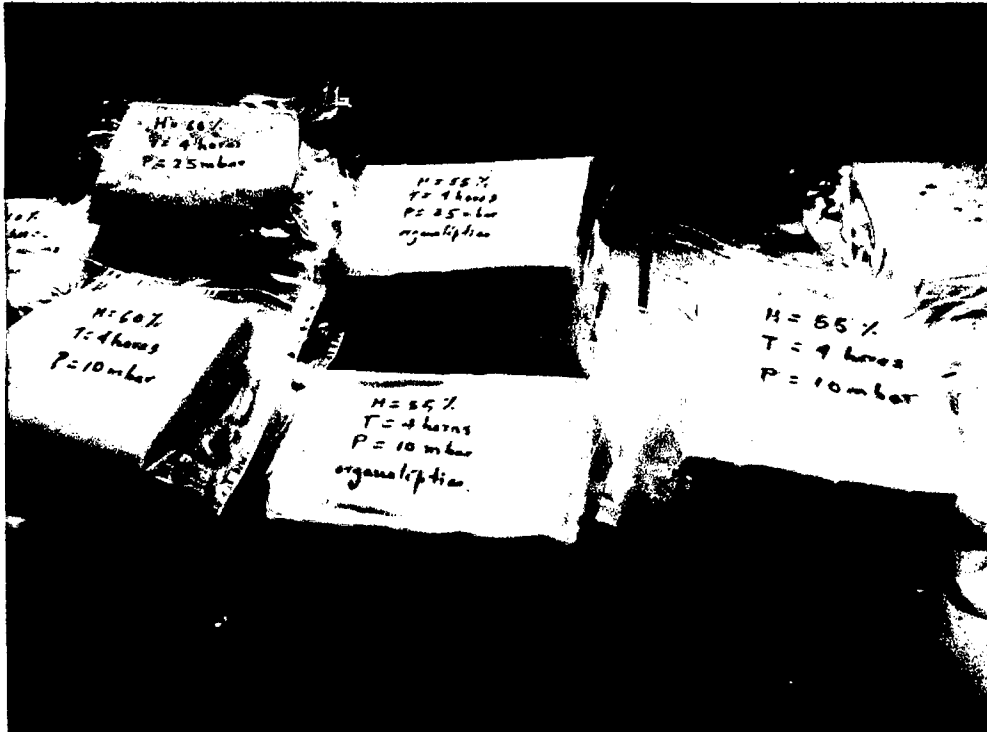 H= 60%
T= 4 horas
P= 25 mbar
H= 55 %
T= 4 horas
P= 25 mbar
organoliptico
H= 60%
T= 4 horas
P= 10 mbar
H= 55 %
T= 4 horas
P= 10 mbar
organoliptico
H= 55 %
T = 4 horas
P = 10 mbar